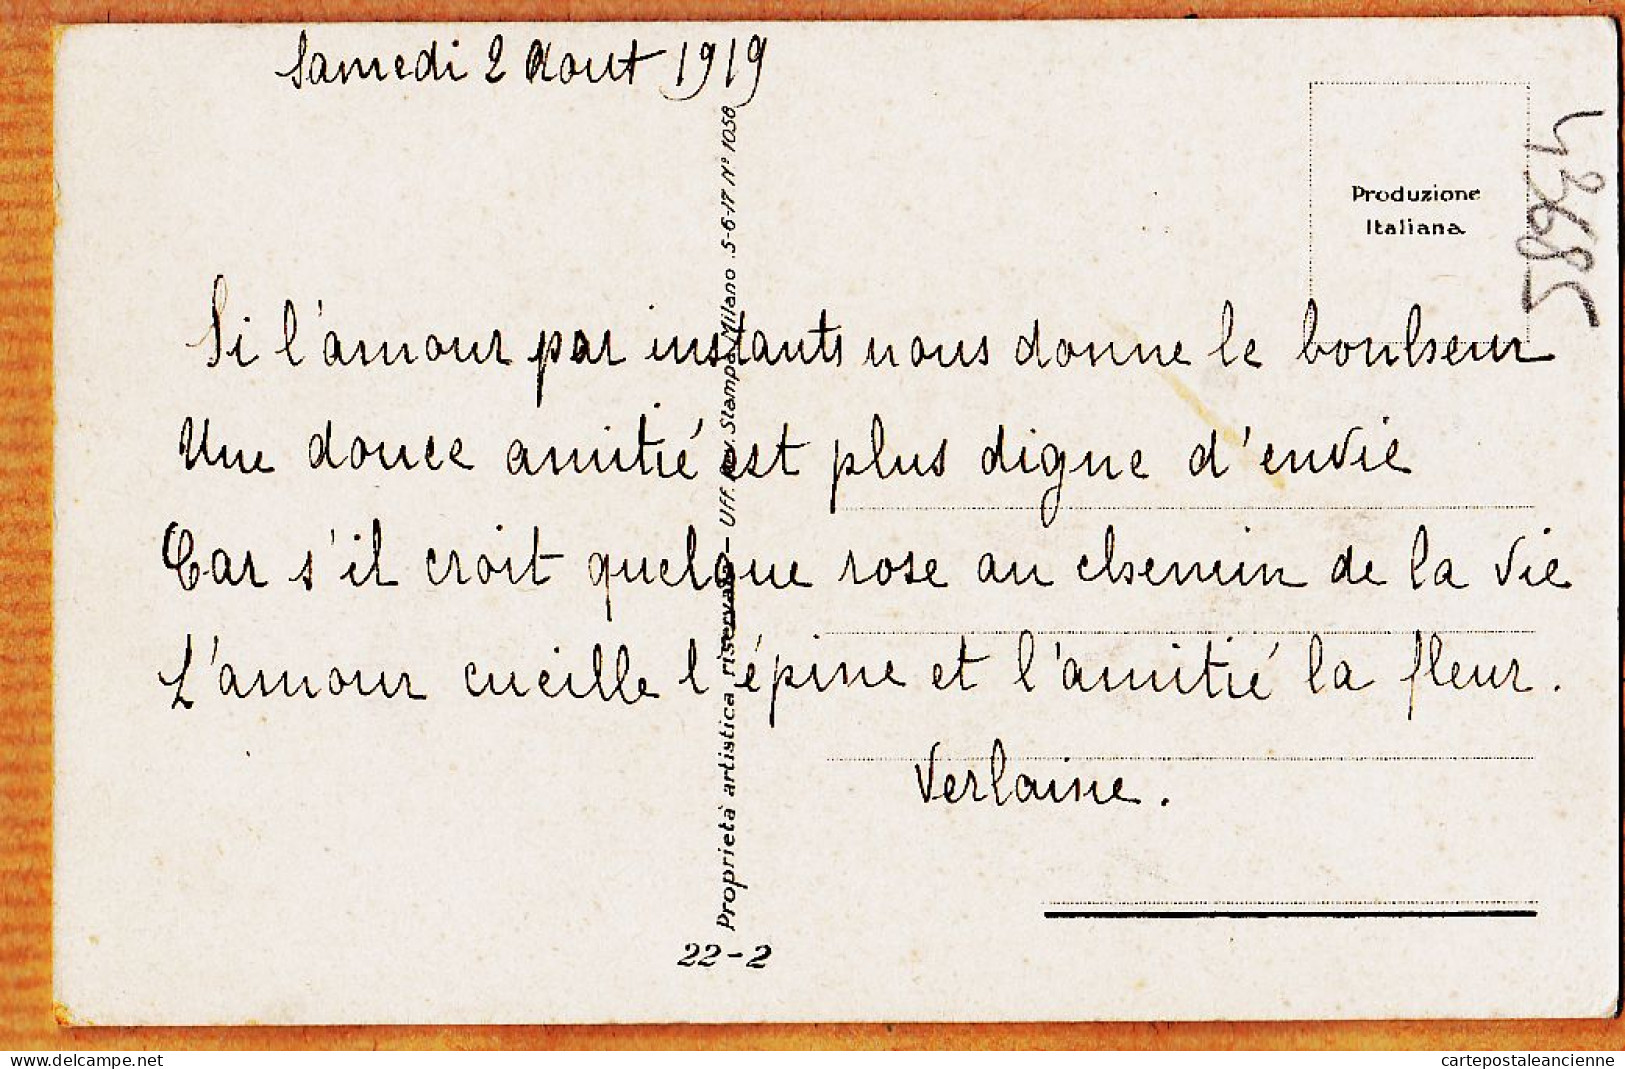 Samedi 2 Aout 1919
Produzione
Italiana
43685
Si l'amour par instants nous donne le bonheur
Une douce amitié est plus digne d'envie
Car s'il croit quelque rose au chemin de la vie
L'amour cueille l'épine et l'amitié la fleur.
Verlaine.
Proprietà artistica riservata - Uff. Rev. Stampa. Milano 5-6-17 N° 1058
22-2
delcampe.net
cartepostaleancienne